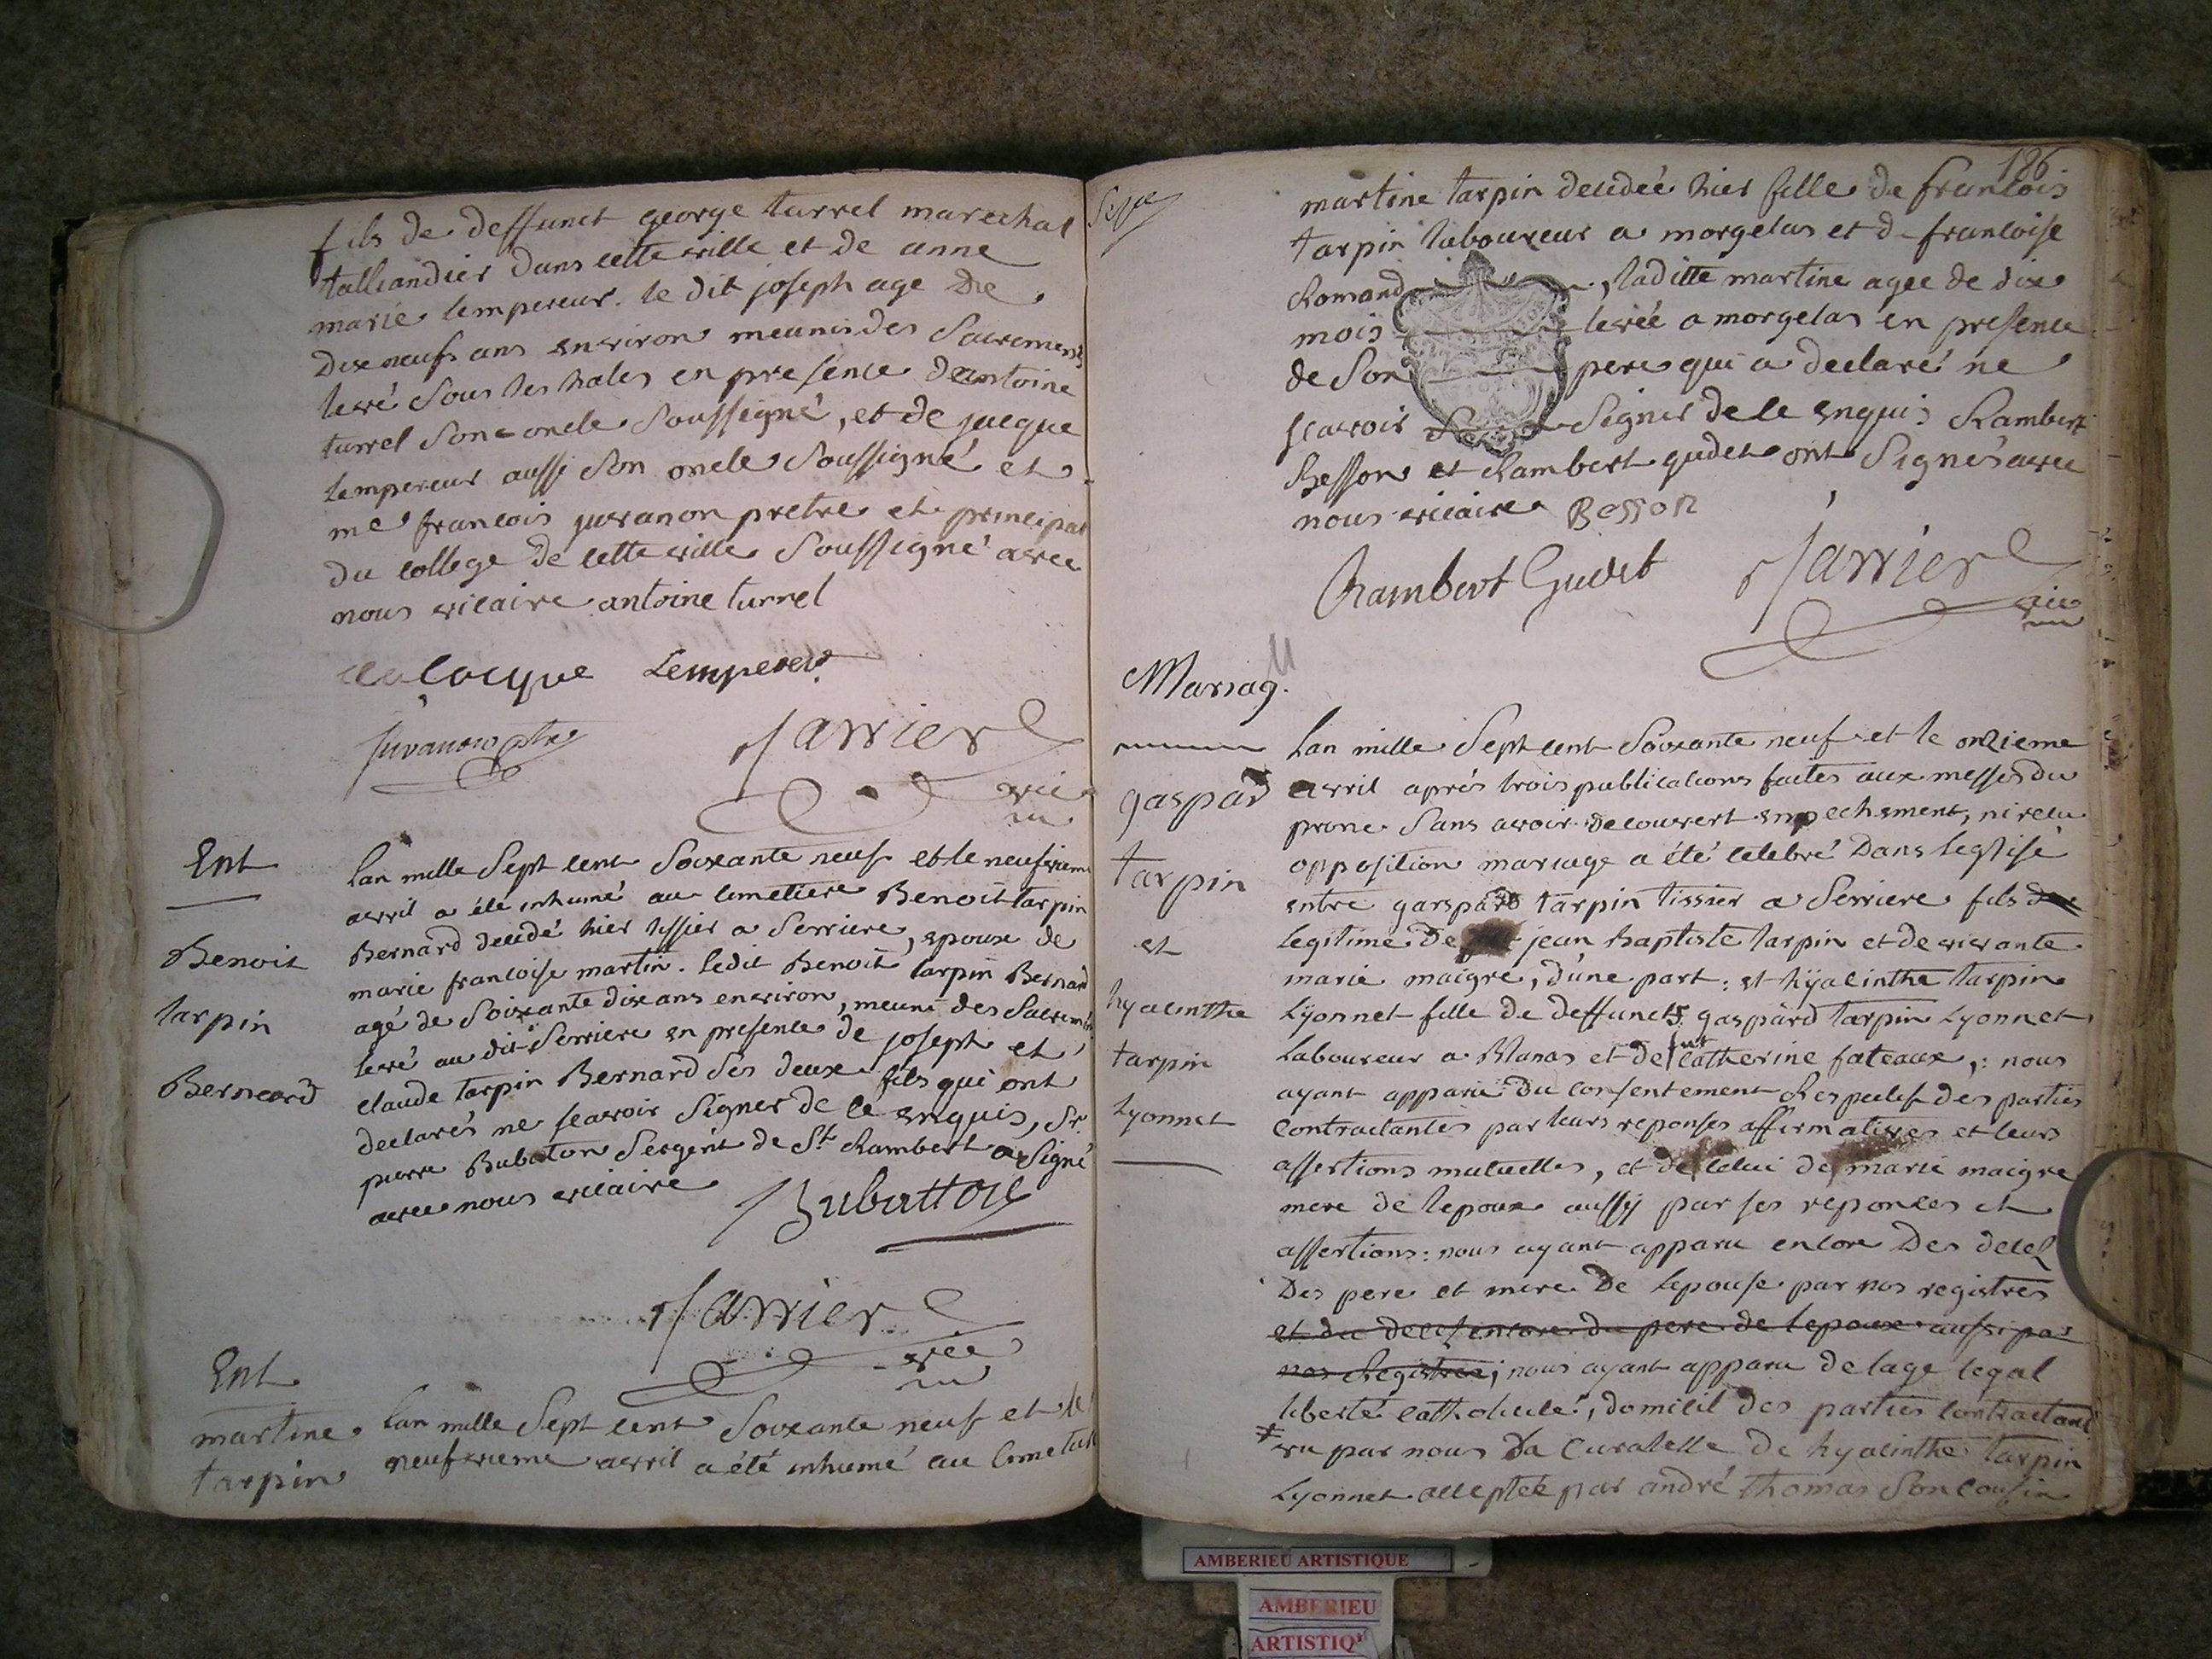 fils de deffunct george turrel marechal
talliandier dans cette ville et de anne
marie lempereur. le dit joseph age de
dix neufs ans environ meuni des Sacrements
levé sous les hales en presence d'antoine
turrel son oncle soussigné, et de jacque
lempereur aussi son oncle soussigné et
me francois juvanon pretre et principal
du college de cette ville soussigné avec
nous vicaire antoine turrel
Lempereur
juvanon ptre
Jarrier
vic
Ent
Benoit
tarpin
Bernard
Lan mille Sept cent Soixante neuf et le neufvieme
avril a été inhumé au cimetiere Benoit tarpin
Bernard decidé hier tissier a Serriere, epoux de
marie francoise martin. ledit Benoit tarpin Bernard
agé de Soixante dix ans environ, meuni des Sacremens
levé au dit Serriere en presence de joseph et
claude tarpin Bernard ses deux fils qui ont
declarés ne scavoir signer de ce enquis, Sr.
pierre Bubaton Sergent de St. Rambert a signé
avec nous vicaire
Bubatton
Jarrier
vic
Ent
martine
tarpin
Lan mille Sept cent Soixante neuf et le
neufvieme avril a été inhumé au cimetiere
186
martine tarpin decidée hier fille de francois
tarpin laboureur a morgelas et de francoise
Romand, laditte martine agee de dix
mois levée a morgelas en presence
de Son pere qui a declaré ne
scavoir Signer de ce enquis Rambert
Besson et Rambert gudet ont Signés avec
nous vicaire Besson
Rambert Gudet
Jarrier
vic
Mariag.
gaspard
tarpin
et
hyacinthe
tarpin
Lyonnet
Lan mille Sept cent Soixante neuf et le onzieme
avril aprés trois publications faites aux messes du
prone Sans avoir decouvert empechement, ni recu
opposition mariage a été celebré Dans leglise
entre garspard tarpin tissier a Serriere fils
legitime de jean baptiste tarpin et de vivante
marie maigre, d'une part: et hÿacinthe tarpin
Lyonnet fille de deffuncts gaspard tarpin Lyonnet
Laboureur a Blanas et de fut catherine fateaux,: nous
ayant apparu du consentement Respectif des parties
contractantes par leurs reponses affirmatives et leurs
assertions mutuelles, et de celui de marie maigre
mere de lepoux aussÿ par ses reponces et
assertions: nous ayant apparu encore Des deces
Des pere et mere De lepouse par nos registres
et du deces encore du pere de lepoux aussi par
nos Registres; nous ayant apparu de lage legal
liberté catholicité, domicil des parties contractant
vu par nous La Curatelle de hyacinthe tarpin
Lyonnet acceptée par andré thomas Son cousin
AMBERIEU ARTISTIQUE
AMBERIEU
ARTISTIQ